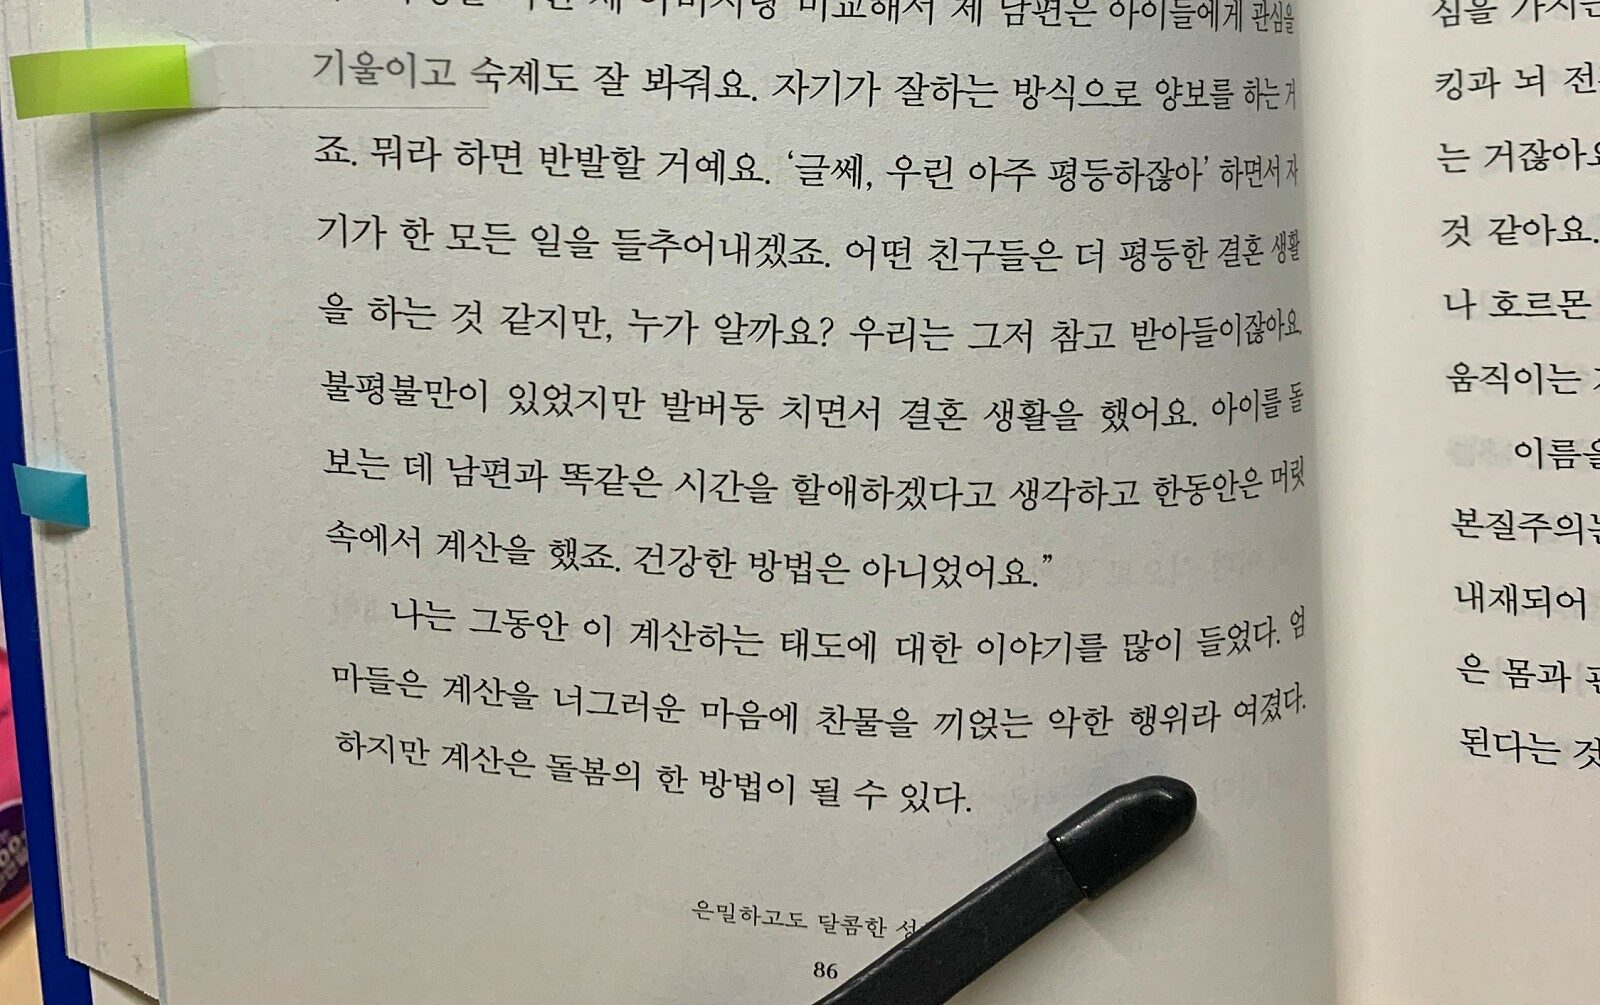 비교해서 제 남편은 아이들에게 관심을
기울이고 숙제도 잘 봐줘요. 자기가 잘하는 방식으로 양보를 하는 거
죠. 뭐라 하면 반발할 거예요. ‘글쎄, 우린 아주 평등하잖아’ 하면서 자
기가 한 모든 일을 들추어내겠죠. 어떤 친구들은 더 평등한 결혼 생활
을 하는 것 같지만, 누가 알까요? 우리는 그저 참고 받아들이잖아요.
불평불만이 있었지만 발버둥 치면서 결혼 생활을 했어요. 아이를 돌
보는 데 남편과 똑같은 시간을 할애하겠다고 생각하고 한동안은 머릿
속에서 계산을 했죠. 건강한 방법은 아니었어요.”
나는 그동안 이 계산하는 태도에 대한 이야기를 많이 들었다. 엄
마들은 계산을 너그러운 마음에 찬물을 끼얹는 악한 행위라 여겼다.
하지만 계산은 돌봄의 한 방법이 될 수 있다.
은밀하고도 달콤한
86
심을
킹과 뇌
는 거잖아요
것 같아요.
나 호르몬
움직이는
이름을
본질주의는
내재되어
은 몸과
된다는 것